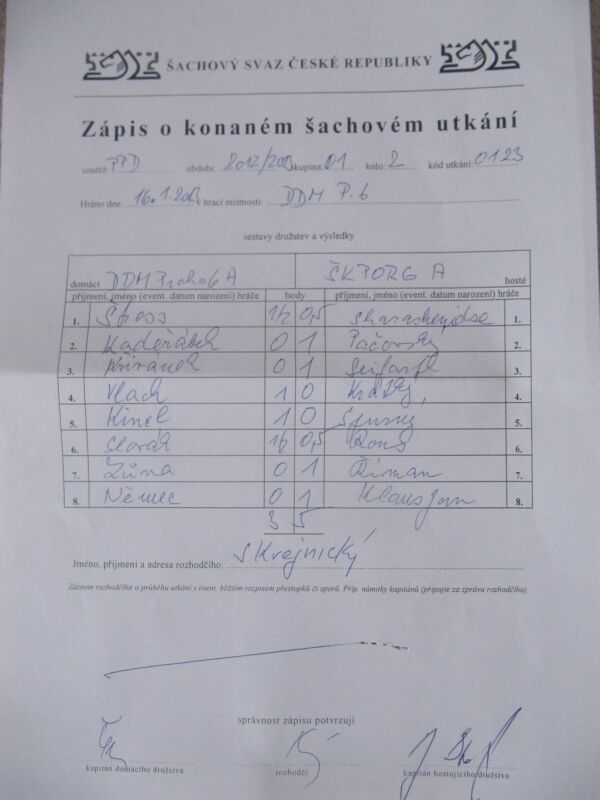 ŠACHOVÝ SVAZ ČESKÉ REPUBLIKY
Zápis o konaném šachovém utkání
soutěž: PPD období: 2012/2013 skupina: 01 kolo: 2 kód utkání: 0123
Hráno dne: 16.1.2013 hrací místnosti: DDM P.6
sestavy družstev a výsledky
domácí DDM Praha 6 A ŠK PORG A hosté
příjmení, jméno (event. datum narození) hráče body příjmení, jméno (event. datum narození) hráče
1. Stress 1/2 0,5 1.
2. Kadeřábek 0 1 Pačovský 2.
3. 0 1 Seifart 3.
4. Vlach 1 0 Krátký 4.
5. Kinel 1 0 Spurný 5.
6. 1/2 0,5 6.
7. Zůna 0 1 Říman 7.
8. Němec 0 1 Klaus Jan 8.
3 5
Jméno, příjmení a adresa rozhodčího: Skrejnický
Záznam rozhodčího o průběhu utkání s event. bližším rozpisem přestupků či sporů. Příp. námitky kapitánů (připojte za zprávu rozhodčího).
správnost zápisu potvrzují
kapitán domácího družstva rozhodčí kapitán hostujícího družstva